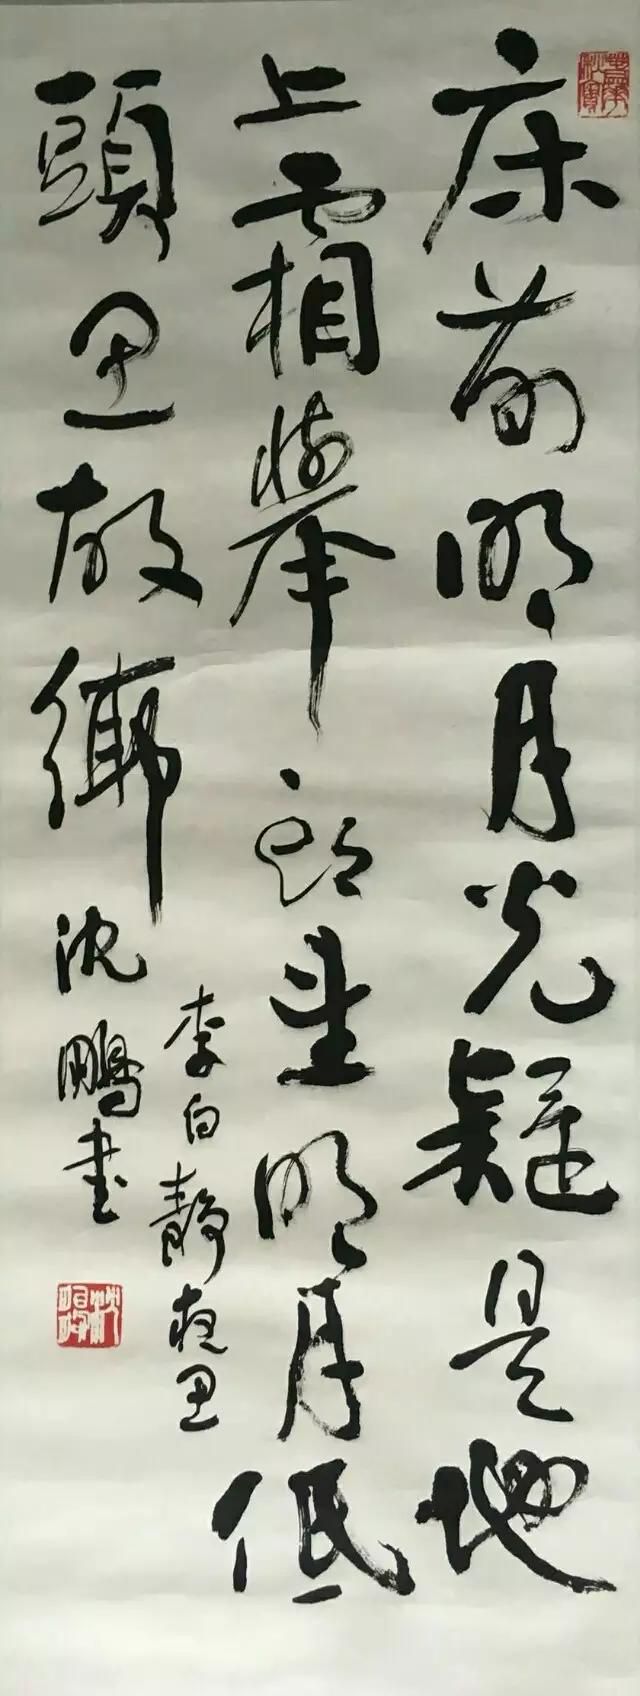 床前明月光疑是地
上霜舉頭望明月低
頭思故鄉
李白靜夜思
沈鵬書